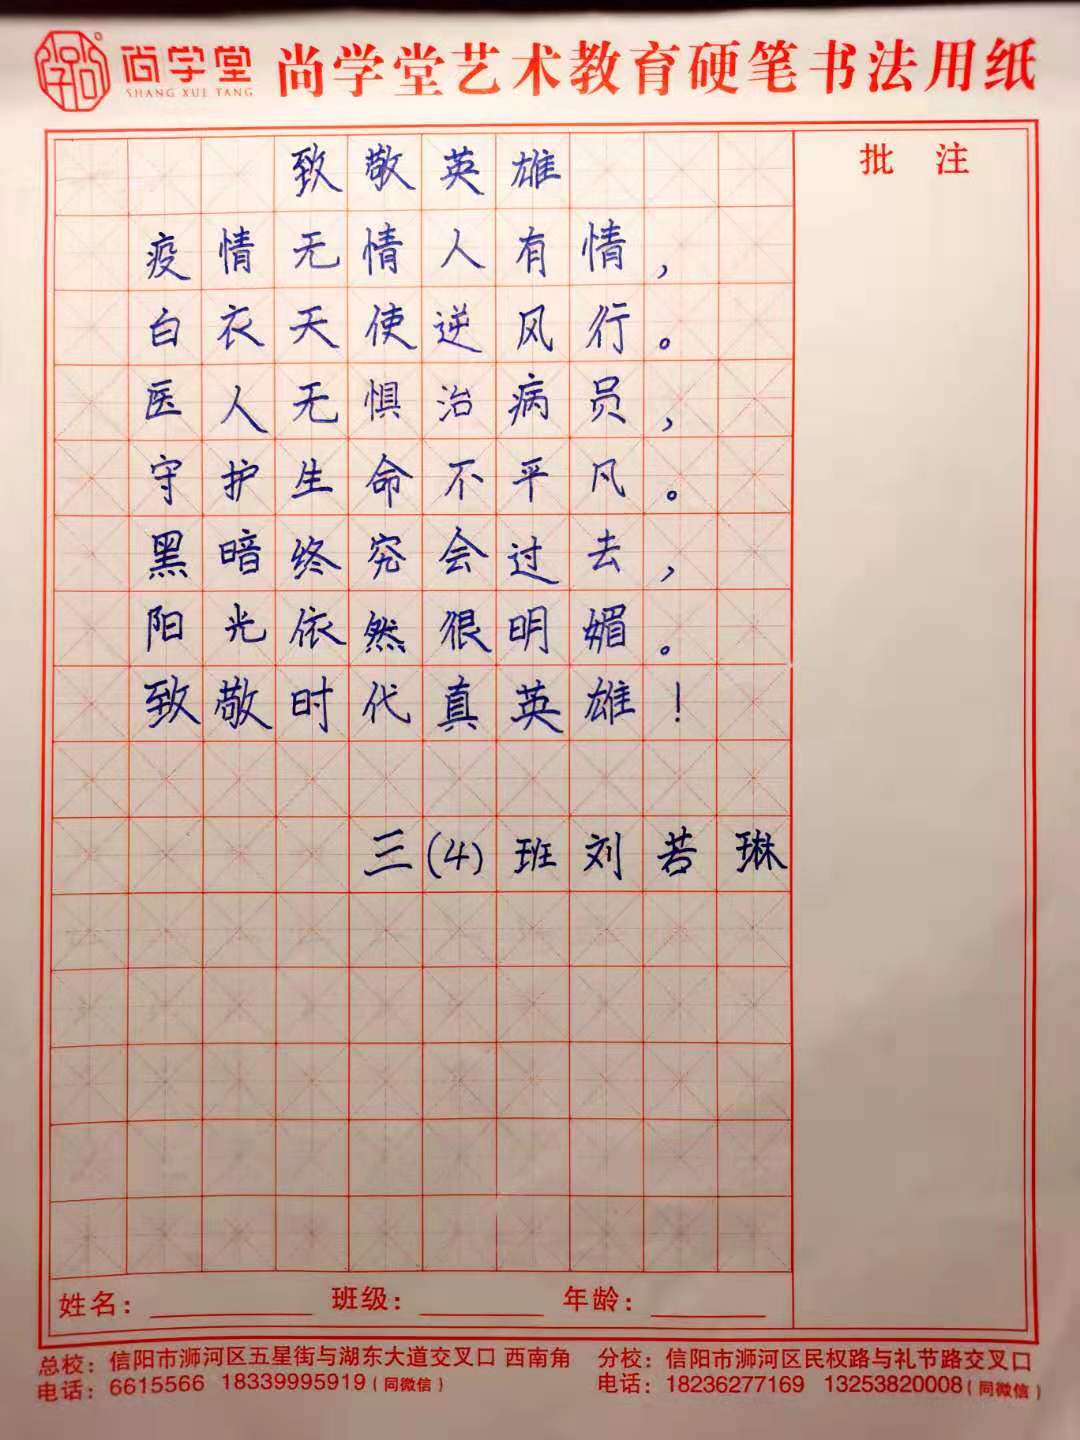 尚学堂
SHANG XUE TANG
尚学堂艺术教育硬笔书法用纸
批 注
致敬英雄
疫情无情人有情，
白衣天使逆风行。
医人无惧治病员，
守护生命不平凡。
黑暗终究会过去，
阳光依然很明媚。
致敬时代真英雄！
三(4)班刘若琳
姓名： 班级： 年龄：
总校：信阳市浉河区五星街与湖东大道交叉口 西南角
电话：6615566 18339995919（同微信）
分校：信阳市浉河区民权路与礼节路交叉口
电话：18236277169 13253820008（同微信）